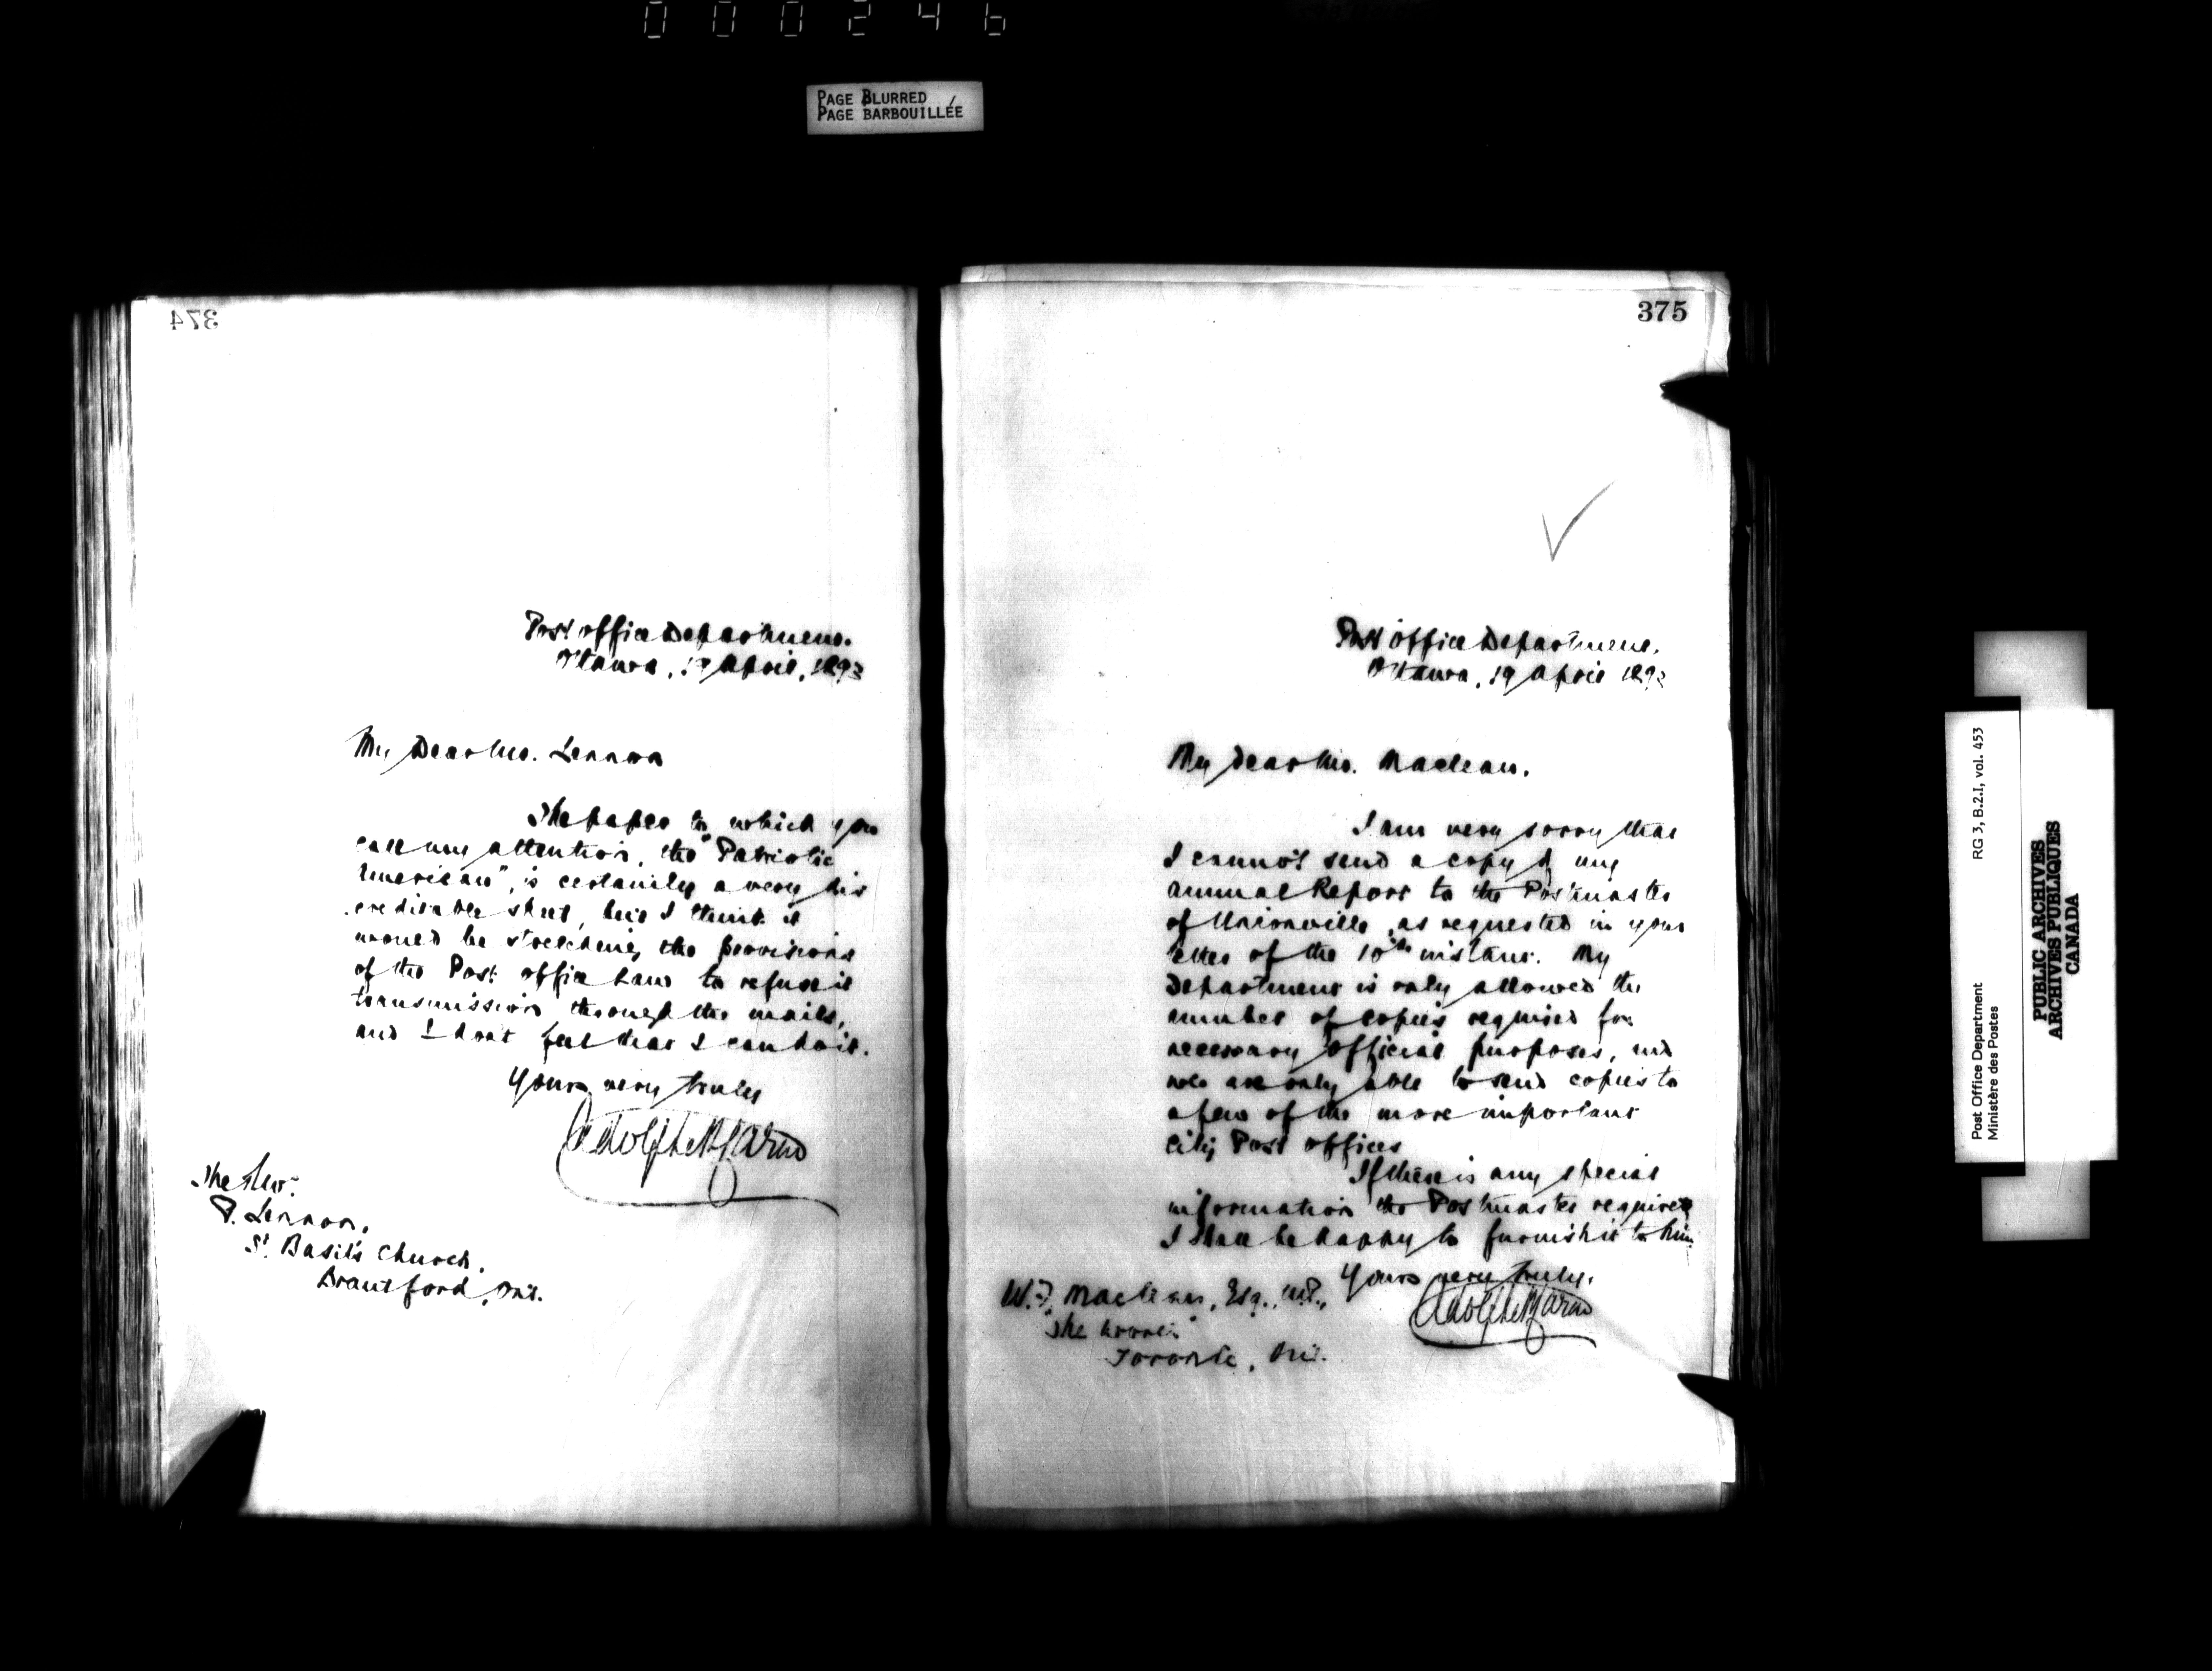 000246
PAGE BLURRED
PAGE BARBOUILLÉE
374
Post Office Department.
Ottawa, 19 April, 1893
My Dear Mr. Lennon
The paper to which you
call my attention, the "Patriotic
American", is certainly a very dis
creditable sheet, but I think it
would be stretching the provisions
of the Post Office Law to refuse it
transmission through the mails,
and I don't feel that I can do it.
Yours very truly
Adolphe P. Caron
The Rev.
P. Lennon,
St. Basil's Church,
Brantford, Ont.
375
Post Office Department.
Ottawa, 19 April 1893
My Dear Mr. Maclean.
I am very sorry that
I cannot send a copy of my
Annual Report to the Postmaster
of Unionville, as requested in your
letter of the 10th instant. My
Department is only allowed the
number of copies required for
necessary official purposes, and
we are only able to send copies to
a few of the more important
City Post Offices
If there is any special
information the Postmaster requires
I shall be happy to furnish it to him
Yours very truly.
Adolphe P. Caron
W. F. Maclean, Esq., M.P.,
"The World"
Toronto, Ont.
Post Office Department RG 3, B.2.1, vol. 453
Ministère des Postes
PUBLIC ARCHIVES
ARCHIVES PUBLIQUES
CANADA